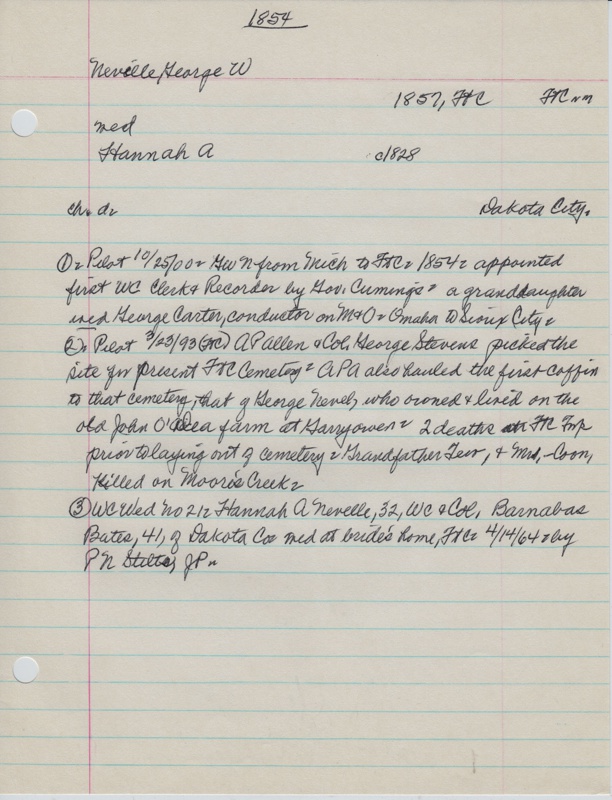 1854
Neville, George W
1857, FtC FtC nm
med
Hannah A c1828
ch. d. Dakota City.
① = Pilot 10/25/00 = GWN from Mich to FtC = 1854 = appointed
first WC Clerk & Recorder by Gov. Cumings = a granddaughter
med George Carter, conductor on M & O = Omaha to Sioux City =
② = Pilot 3/23/93 (FtC) A P Allen & Col. George Stevens picked the
site for present FtC Cemetery = APA also hauled the first coffin
to that cemetery, that of George Nevel, who owned & lived on the
old John O'Dea farm at Garryowen = 2 deaths FtC Twp
prior to laying out of cemetery = Grandfather & Mrs. Coon,
killed on Moore's Creek =
③ WC Wed no 21 = Hannah A Nevelle, 32, WC & Col. Barnabas
Bates, 41, of Dakota Co = med at bride's home, FtC = 4/14/64 = by
P N Stilts, JP =